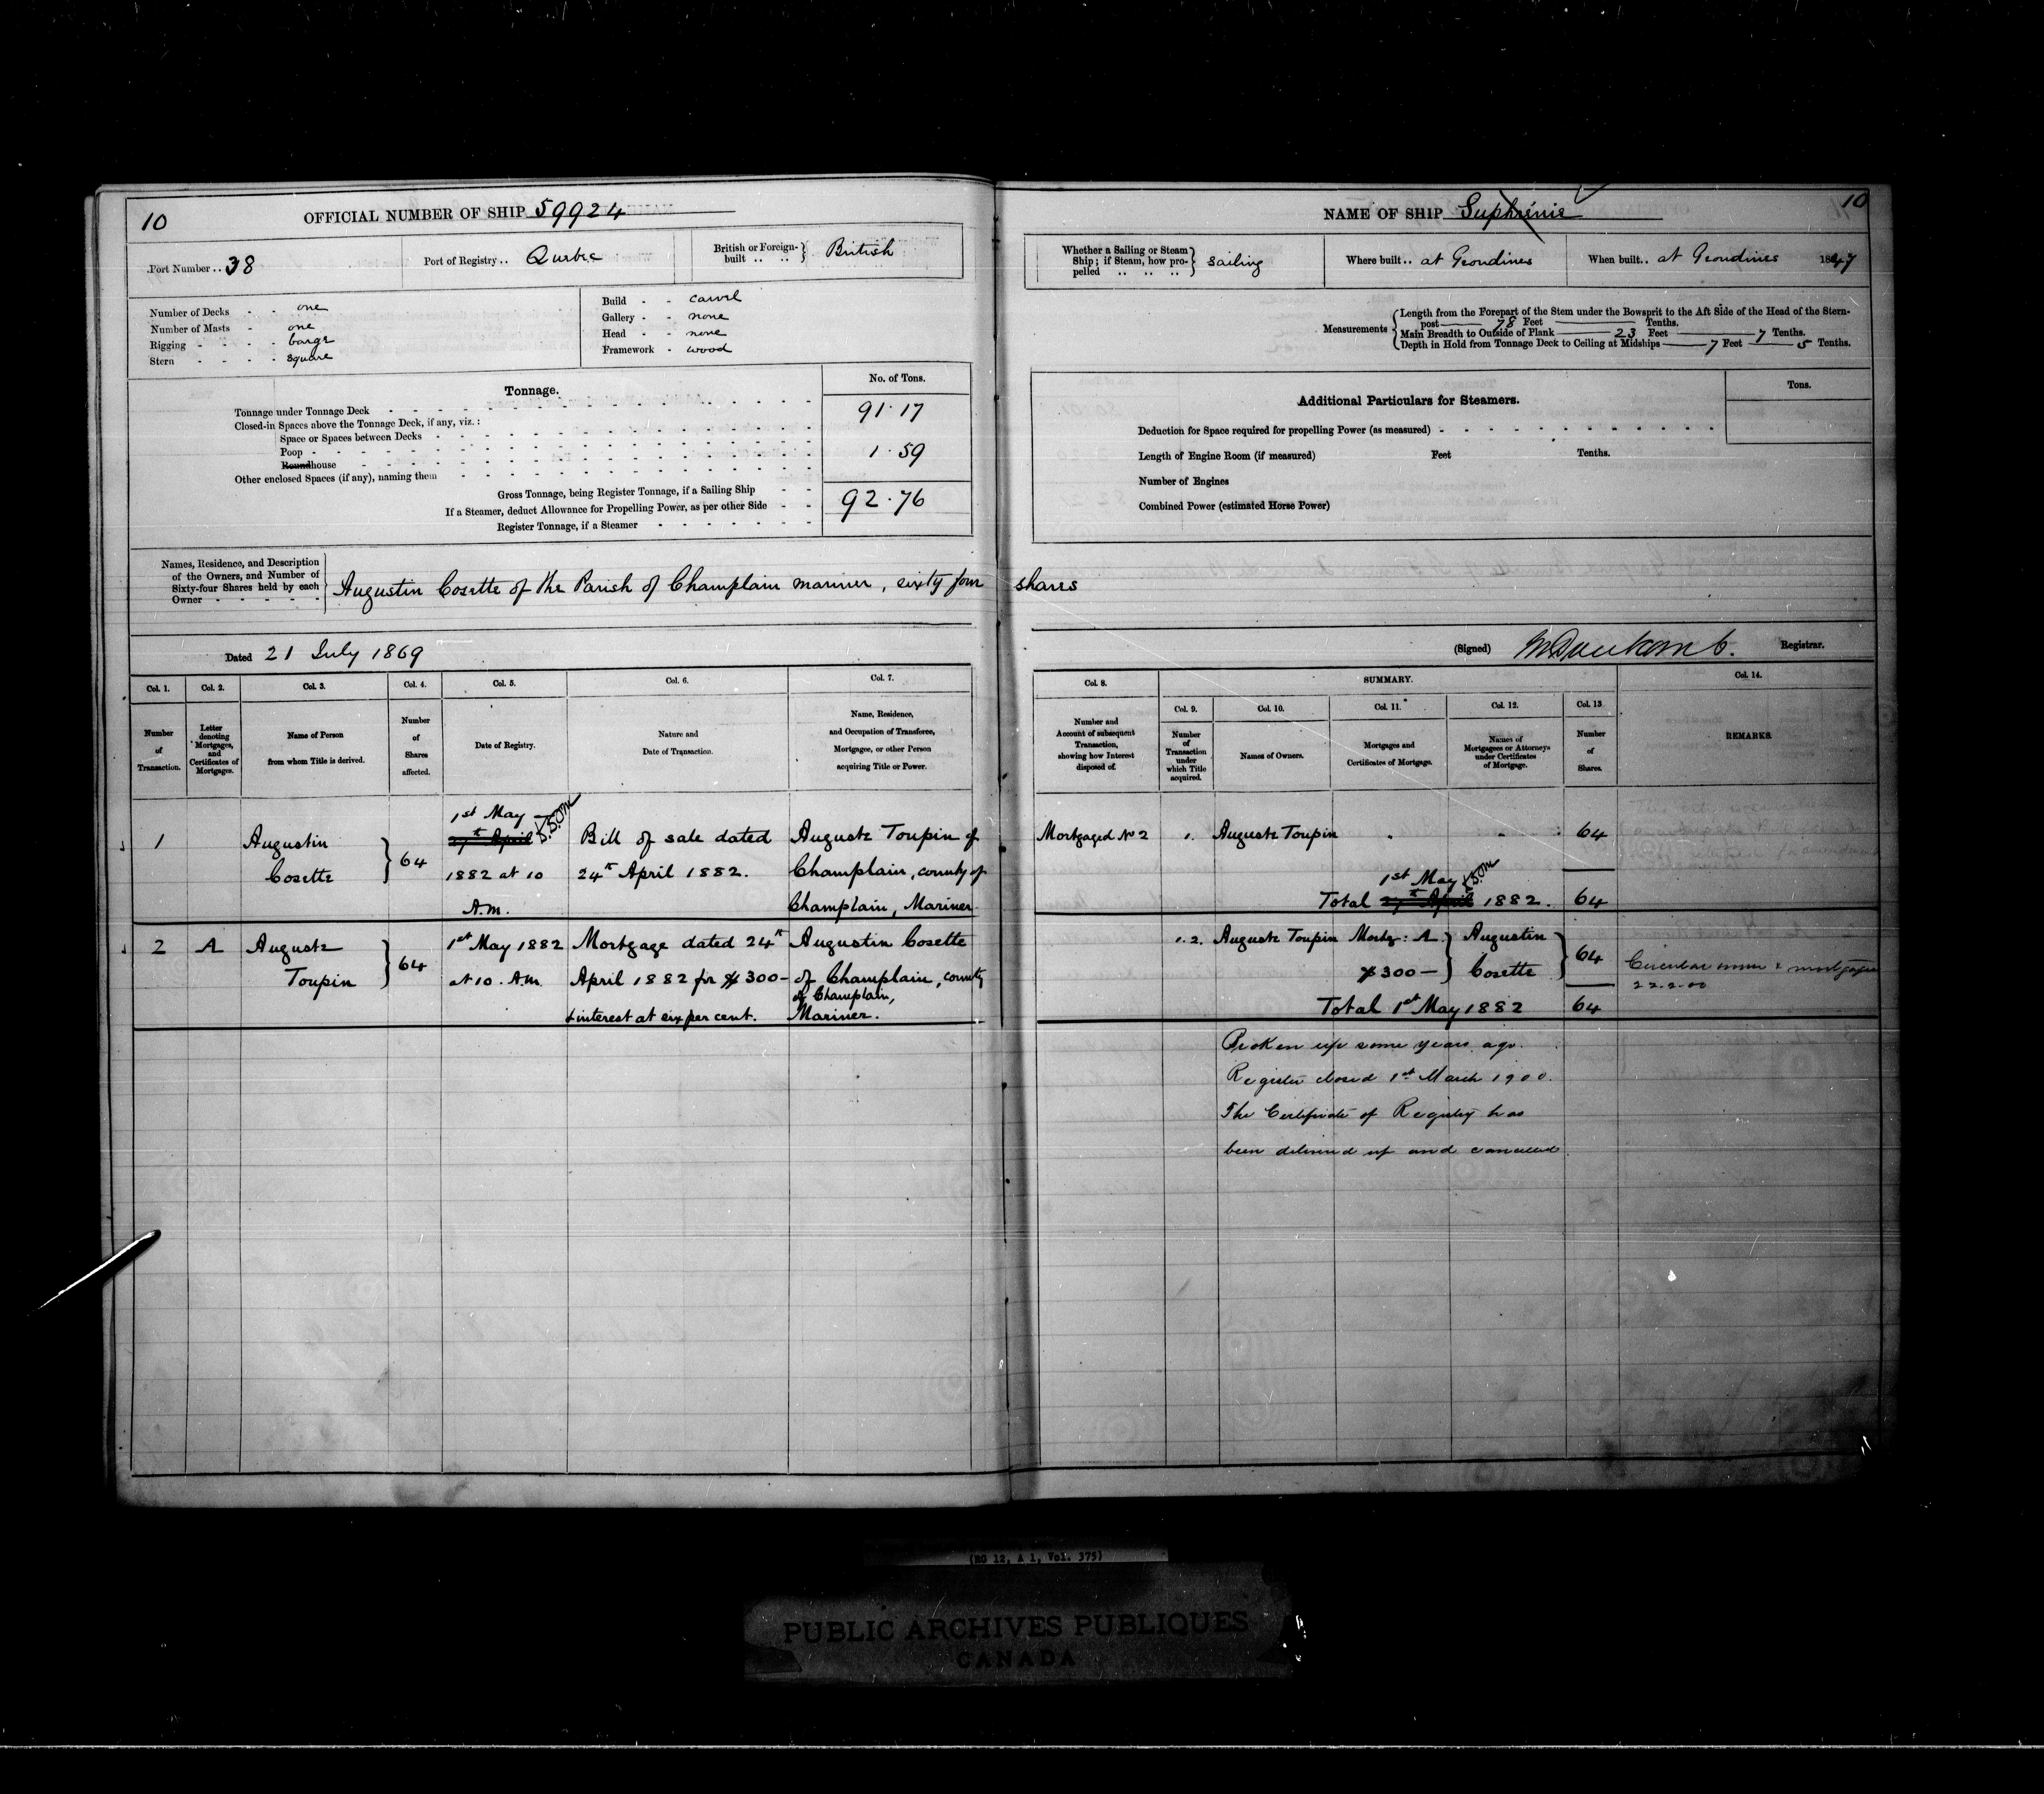 10
OFFICIAL NUMBER OF SHIP 59924
Port Number .. 38
Port of Registry .. Quebec
British or Foreign-built .. .. } British
Number of Decks - - one
Number of Masts - one
Rigging - - - - barge
Stern - - - - square
Build - - carvel
Gallery - - none
Head - - none
Framework - wood
Tonnage.
No. of Tons.
Tonnage under Tonnage Deck 91.17
Closed-in Spaces above the Tonnage Deck, if any, viz.:
Space or Spaces between Decks
Poop
Roundhouse 1.59
Other enclosed Spaces (if any), naming them
Gross Tonnage, being Register Tonnage, if a Sailing Ship
If a Steamer, deduct Allowance for Propelling Power, as per other Side 92.76
Register Tonnage, if a Steamer
Names, Residence, and Description
of the Owners, and Number of
Sixty-four Shares held by each
Owner
Augustin Cosette of the Parish of Champlain mariner, sixty four shares
Dated 21 July 1869
Col. 1. Col. 2. Col. 3. Col. 4. Col. 5. Col. 6. Col. 7.
Number of Transaction.
Letter denoting Mortgages, and Certificates of Mortgages.
Name of Person from whom Title is derived.
Number of Shares affected.
Date of Registry.
Nature and Date of Transaction.
Name, Residence, and Occupation of Transferee, Mortgagee, or other Person acquiring Title or Power.
1
Augustin
Cosette
64
1st May
27th April
1882 at 10
A.m.
Bill of sale dated
24th April 1882.
Auguste Toupin of
Champlain, county of
Champlain, Mariner
2 A
Auguste
Toupin
64
1st May 1882
at 10. A.m.
Mortgage dated 24th
April 1882 for $300-
+ interest at six per cent.
Augustin Cosette
of Champlain, county
of Champlain,
Mariner.
10
NAME OF SHIP
Whether a Sailing or Steam
Ship; if Steam, how pro-
pelled .. .. .. } sailing
Where built .. at Grondines
When built .. at Grondines 1847
Measurements
Length from the Forepart of the Stem under the Bowsprit to the Aft Side of the Head of the Stern-
post 78 Feet Tenths.
Main Breadth to Outside of Plank 23 Feet 7 Tenths.
Depth in Hold from Tonnage Deck to Ceiling at Midships 7 Feet 5 Tenths.
Additional Particulars for Steamers.
Tons.
Deduction for Space required for propelling Power (as measured)
Length of Engine Room (if measured) Feet Tenths.
Number of Engines
Combined Power (estimated Horse Power)
(Signed) Registrar.
Col. 8. SUMMARY. Col. 14.
Col. 9. Col. 10. Col. 11. Col. 12. Col. 13
Number and Account of subsequent Transaction, showing how Interest disposed of.
Number of Transaction under which Title acquired.
Names of Owners.
Mortgages and Certificates of Mortgage.
Names of Mortgagees or Attorneys under Certificates of Mortgage.
Number of Shares.
REMARKS.
Mortgaged No 2 1. Auguste Toupin 64
1st May
Total 27th April 1882. 64
1.2. Auguste Toupin Mortg: A
$300—
Augustin
Cosette
64
Total 1st May 1882 64
Circular owner & mortgagee
22-2-00
Broken up some years ago.
Register closed 1st March 1900.
The Certificate of Registry has
been delivered up and cancelled
(RG 12, A 1, Vol. 375)
PUBLIC ARCHIVES PUBLIQUES
CANADA